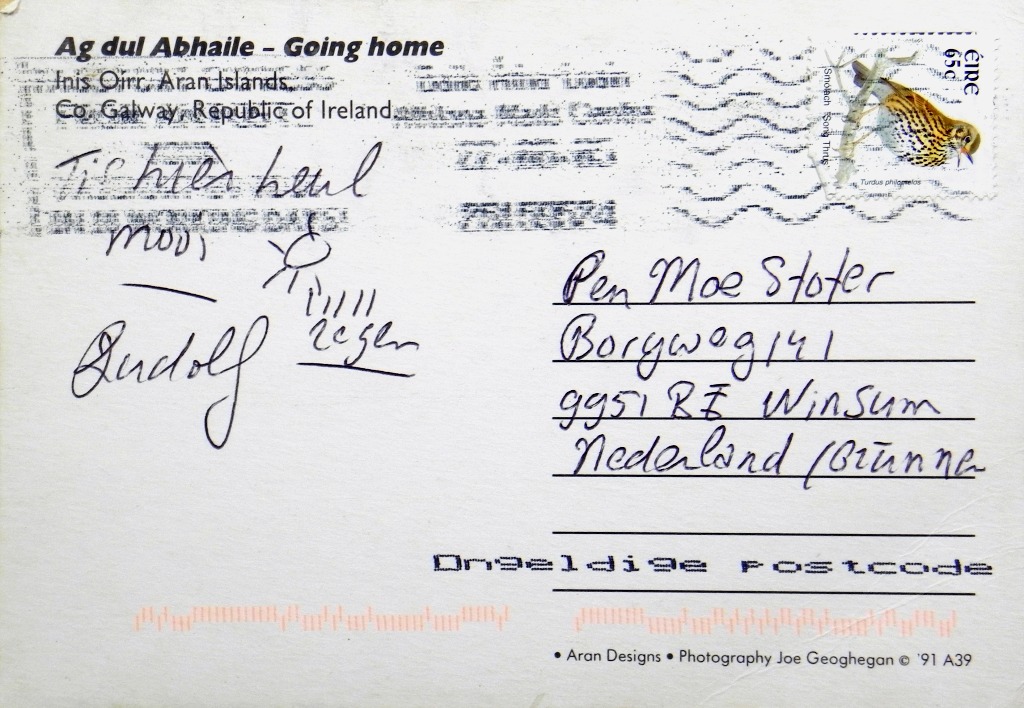 Ag dul Abhaile – Going home
Inis Oirr, Aran Islands,
Co. Galway, Republic of Ireland
éıre
65c
Smólach Song Thrush
Turdus philomelos
Tis hier heul
mooi
regen
Rudolf
Pen Moe Stoter
Borgweg 141
9951 BE Winsum
Nederland /
Ongeldige Postcode
• Aran Designs • Photography Joe Geoghegan © '91 A39